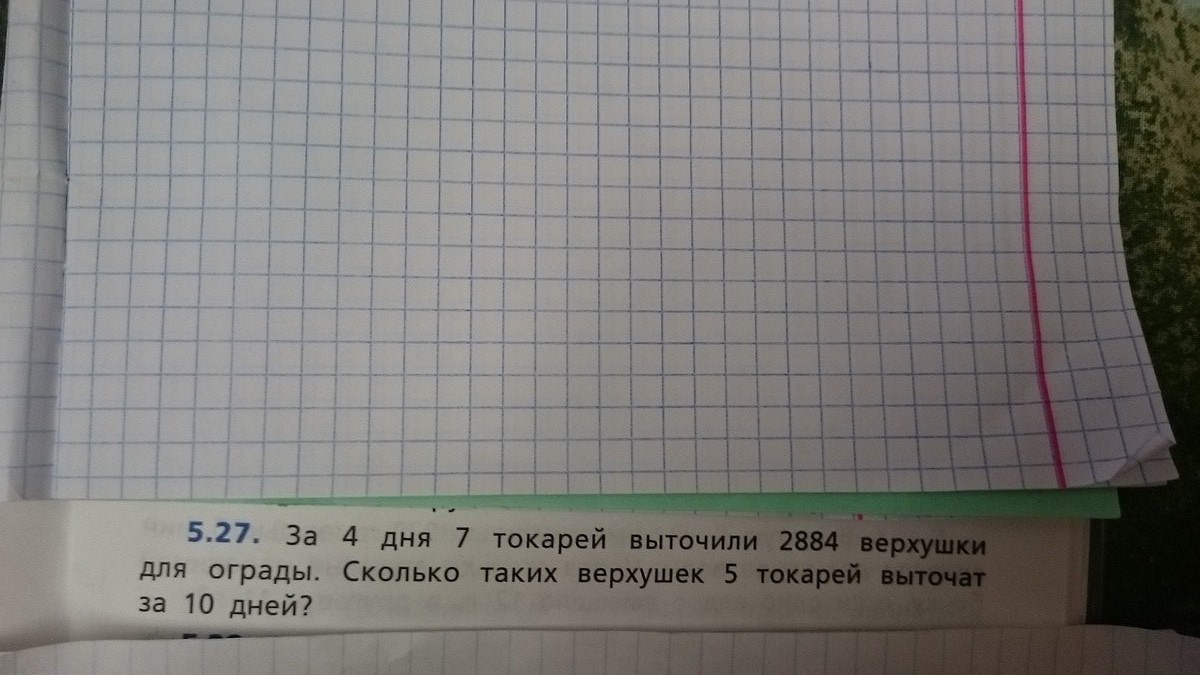 5.27. За 4 дня 7 токарей выточили 2884 верхушки
для ограды. Сколько таких верхушек 5 токарей выточат
за 10 дней?